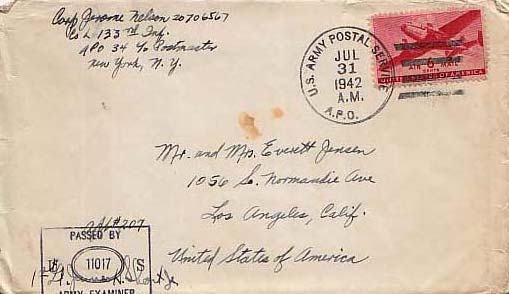 Corp Jerome Nelson 20706567
Co L 133rd Inf.
APO 34 c/o Postmaster
New York, N.Y.
U.S. ARMY POSTAL SERVICE
JUL
31
1942
A.M.
A.P.O.
AIR 6 MAIL
CENTS
UNITED STATES OF AMERICA
Mr. and Mrs. Everett Jensen
1056 So. Normandie Ave
Los Angeles, Calif.
United States of America
#207
PASSED BY
U 11017 S
1st Lt. James N.
ARMY EXAMINER